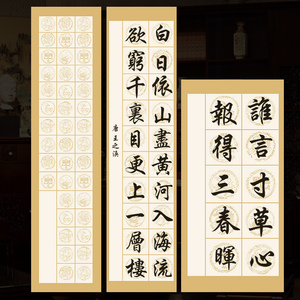 白日依山盡黄河入海流
欲窮千裏目更上一層樓
唐王之渙
誰言寸草心
報得三春暉